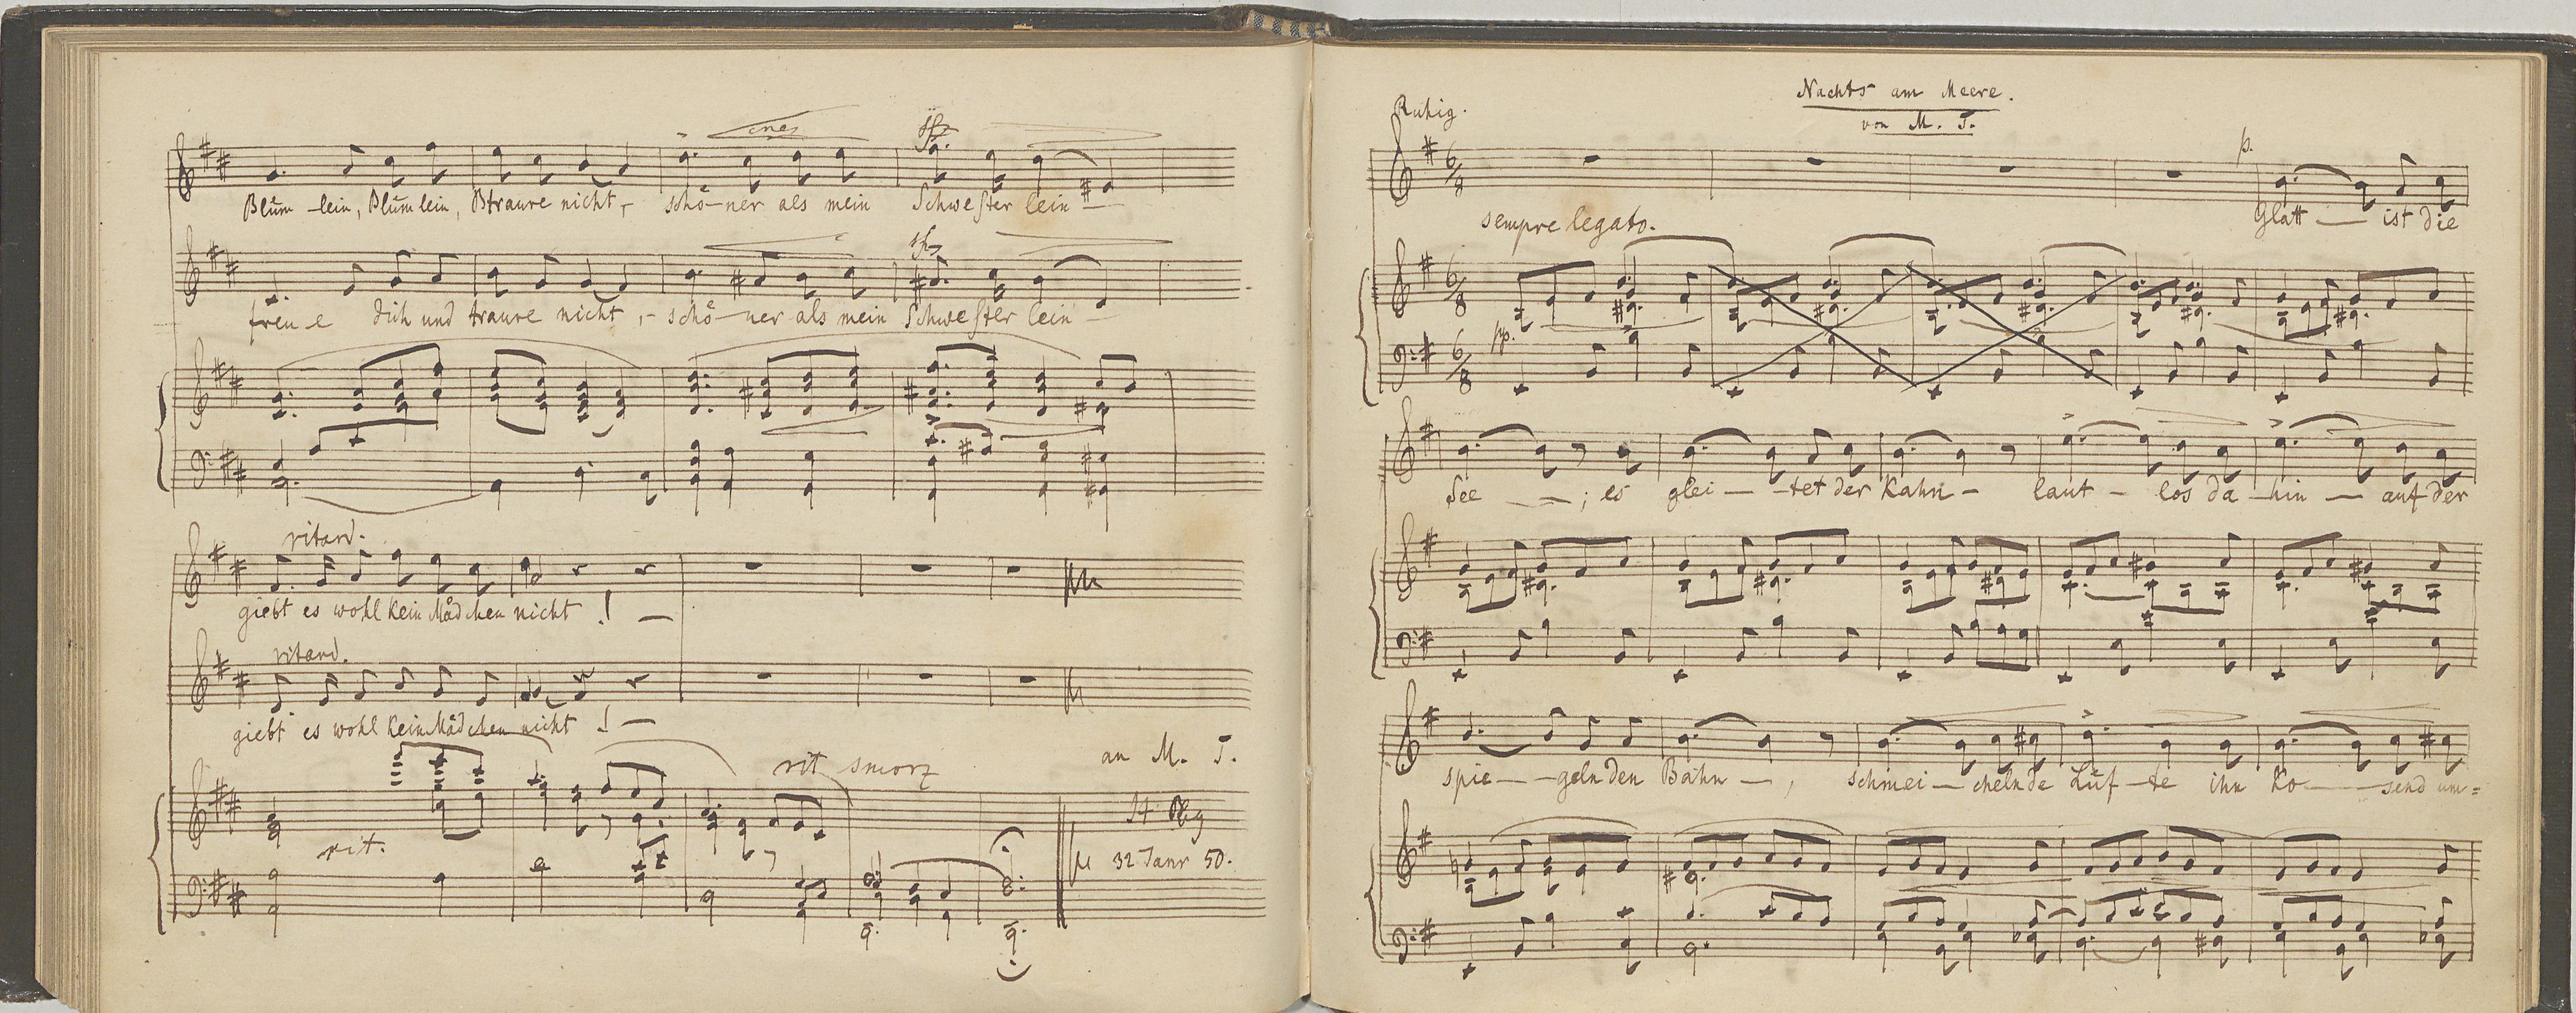 cresc
sfz
Blüm-lein, Blümlein, traure nicht,- schö-ner als mein Schwesterlein-
sfz
freu-e dich und traure nicht,- schö-ner als mein Schwesterlein-
ritard.
giebt es wohl kein Mädchen nicht!-
ritard.
giebt es wohl kein Mädchen nicht!-
rit smorz
rit.
an M. T.
14
Janr 50.
Nachts am Meere.
von M. T.
Ruhig.
p.
6/8
Glatt — ist die
sempre legato.
6/8
pp.
6/8
See — — ; es glei — tet der Kahn - laut - los da - hin — auf der
spie — geln den Bahn — , schmei — chelnde Lüf - te ihn ko — send um=